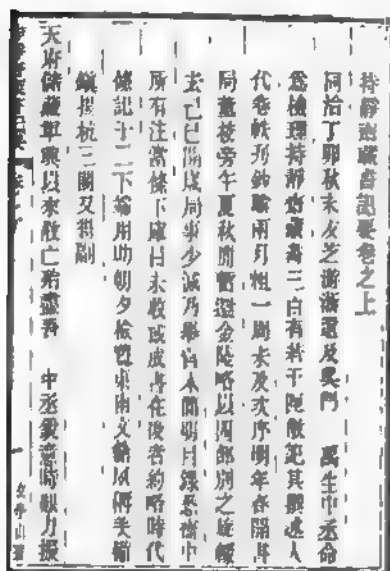 持靜齋藏書記要卷之上
同治丁卯秋末友芝浙游還及吳門 禹生中丞命
爲檢理持靜齋藏書三百有若干匧散記其撰述人
代卷帙刊鈔踰兩月粗一周未及次序明年春開書
局董校旁午夏秋間暫還金陵略以四部別之旋輟
去己巳開歲局事少減乃舉官本簡明目錄悉齋中
所有注當條下庫目未收或成書在後者約略時代
條記于上下端用助朝夕檢覽東南文籍夙稱美備
鎮揚杭三閣又得副
天府儲藏軍興以來散亡殆盡吾 中丞銳意時艱力振
持靜齋藏書記要 卷上
文學山房